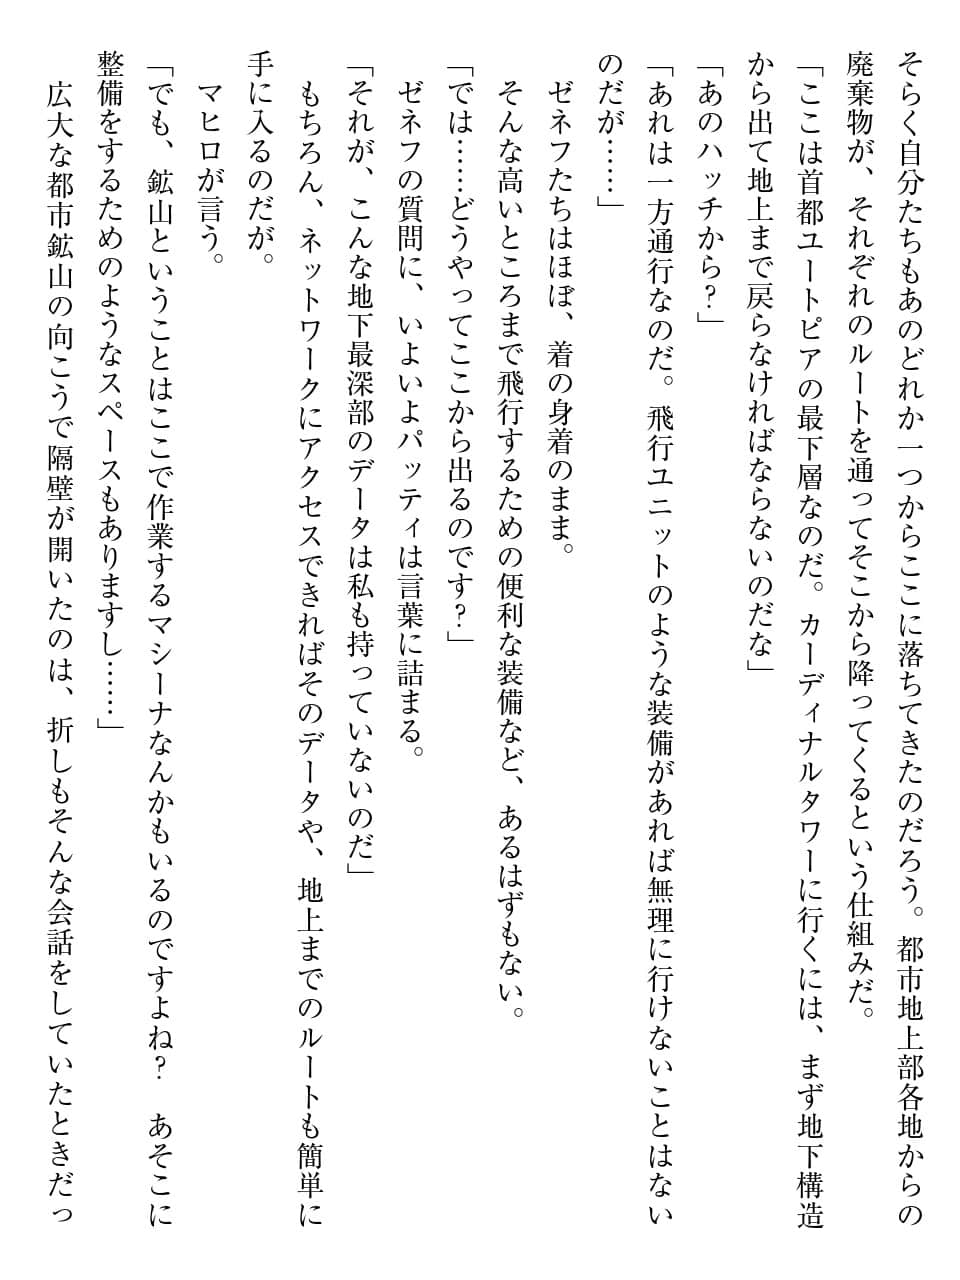 そらく自分たちもあのどれか一つからここに落ちてきたのだろう。都市地上部各地からの
廃棄物が、それぞれのルートを通ってそこから降ってくるという仕組みだ。
「ここは首都ユートピアの最下層なのだ。カーディナルタワーに行くには、まず地下構造
から出て地上まで戻らなければならないのだな」
「あのハッチから？」
「あれは一方通行なのだ。飛行ユニットのような装備があれば無理に行けないことはない
のだが……」
　ゼネフたちはほぼ、着の身着のまま。
　そんな高いところまで飛行するための便利な装備など、あるはずもない。
「では……どうやってここから出るのです？」
　ゼネフの質問に、いよいよパッティは言葉に詰まる。
「それが、こんな地下最深部のデータは私も持っていないのだ」
　もちろん、ネットワークにアクセスできればそのデータや、地上までのルートも簡単に
手に入るのだが。
　マヒロが言う。
「でも、鉱山ということはここで作業するマシーナなんかもいるのですよね？　あそこに
整備をするためのようなスペースもありますし……」
　広大な都市鉱山の向こうで隔壁が開いたのは、折しもそんな会話をしていたときだっ